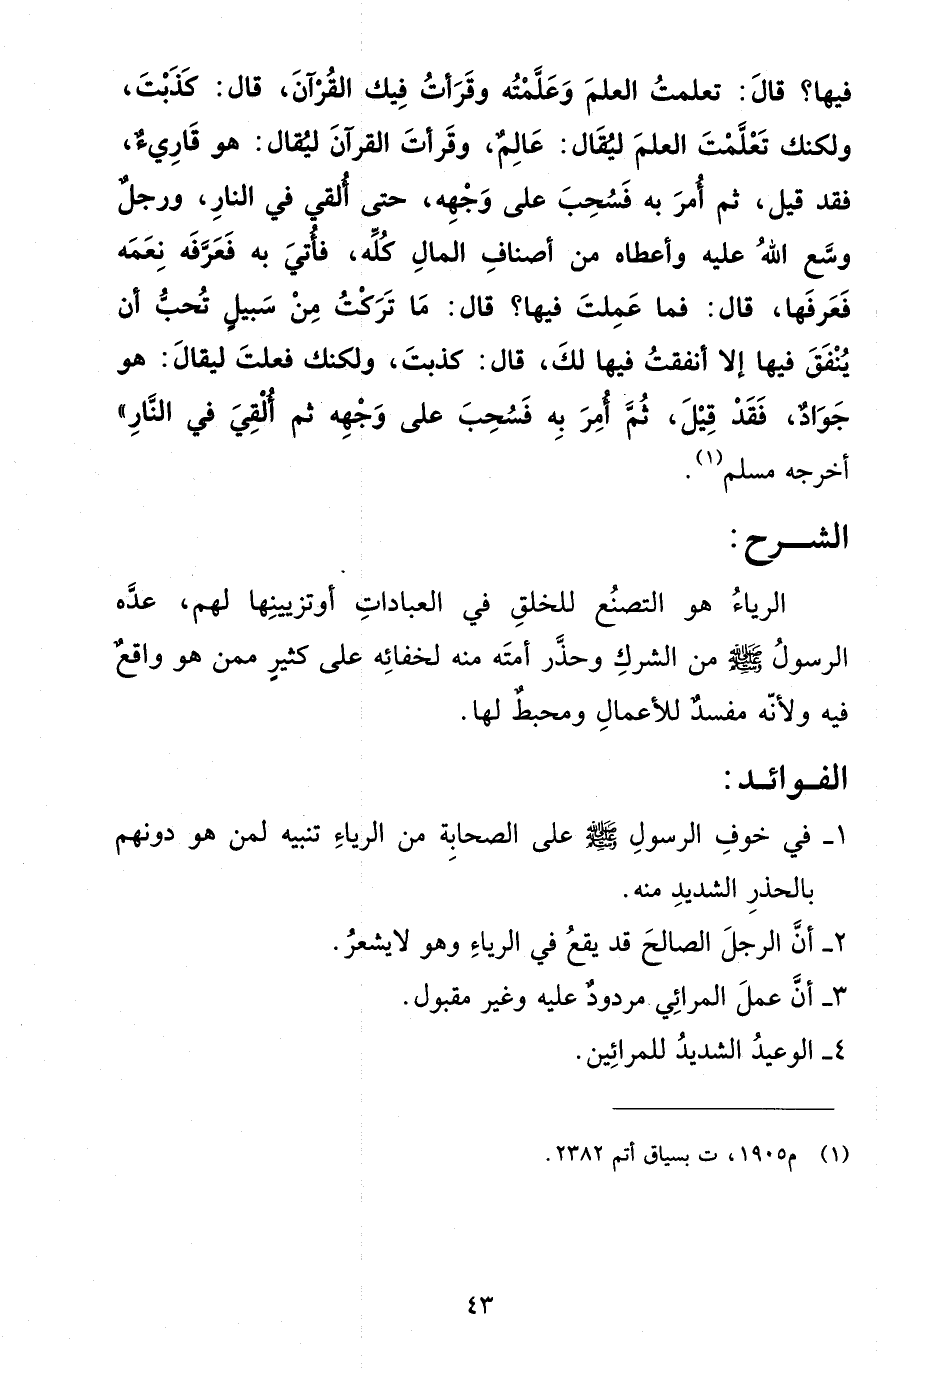 فيها؟ قالَ: تعلمتُ العلمَ وَعَلَّمْتُه وقَرَأتُ فِيك القُرْآنَ، قال: كَذَبْتَ،
ولكنك تَعْلَّمْتَ العلمَ ليُقَال: عَالِمٌ، وقَرأتَ القرآنَ ليُقال: هو قَارِيءٌ،
فقد قيل، ثم أُمرَ به فَسُحِبَ على وَجْهِه، حتى أُلقي في النارِ، ورجلٌ
وسَّع اللهُ عليه وأعطاه من أصنافِ المالِ كُلِّه، فأُتيَ به فَعَرَّفَه نِعَمَه
فَعَرفَها، قال: فما عَمِلتَ فيها؟ قال: مَا تَرَكْتُ مِنْ سَبيلٍ تُحبُّ أن
يُنْفَقَ فيها إلا أنفقتُ فيها لكَ، قال: كذبتَ، ولكنك فعلتَ ليقالَ: هو
جَوَادٌ، فَقَدْ قِيْلَ، ثُمَّ أُمِرَ بِه فَسُحِبَ على وَجْهِه ثم أُلْقِيَ في النَّارِ»
أخرجه مسلم(١).
الشـــرح:
الرياءُ هو التصنُع للخلقِ في العباداتِ أوتزيينِها لهم، عدَّه
الرسولُ ﷺ من الشركِ وحذَّر أمتَه منه لخفائِه على كثيرٍ ممن هو واقعٌ
فيه ولأنّه مفسدٌ للأعمالِ ومحبطٌ لها.
الفـوائـد:
١ـ في خوفِ الرسولِ ﷺ على الصحابِة من الرياءِ تنبيه لمن هو دونهم
بالحذرِ الشديدِ منه.
٢ـ أنَّ الرجلَ الصالحَ قد يقعُ في الرياءِ وهو لايشعرُ.
٣ـ أنَّ عملَ المرائِي مردودٌ عليه وغير مقبول.
٤ـ الوعيدُ الشديدُ للمرائِين.
(١) م١٩٠٥، ت بسياق أتم ٢٣٨٢.
٤٣